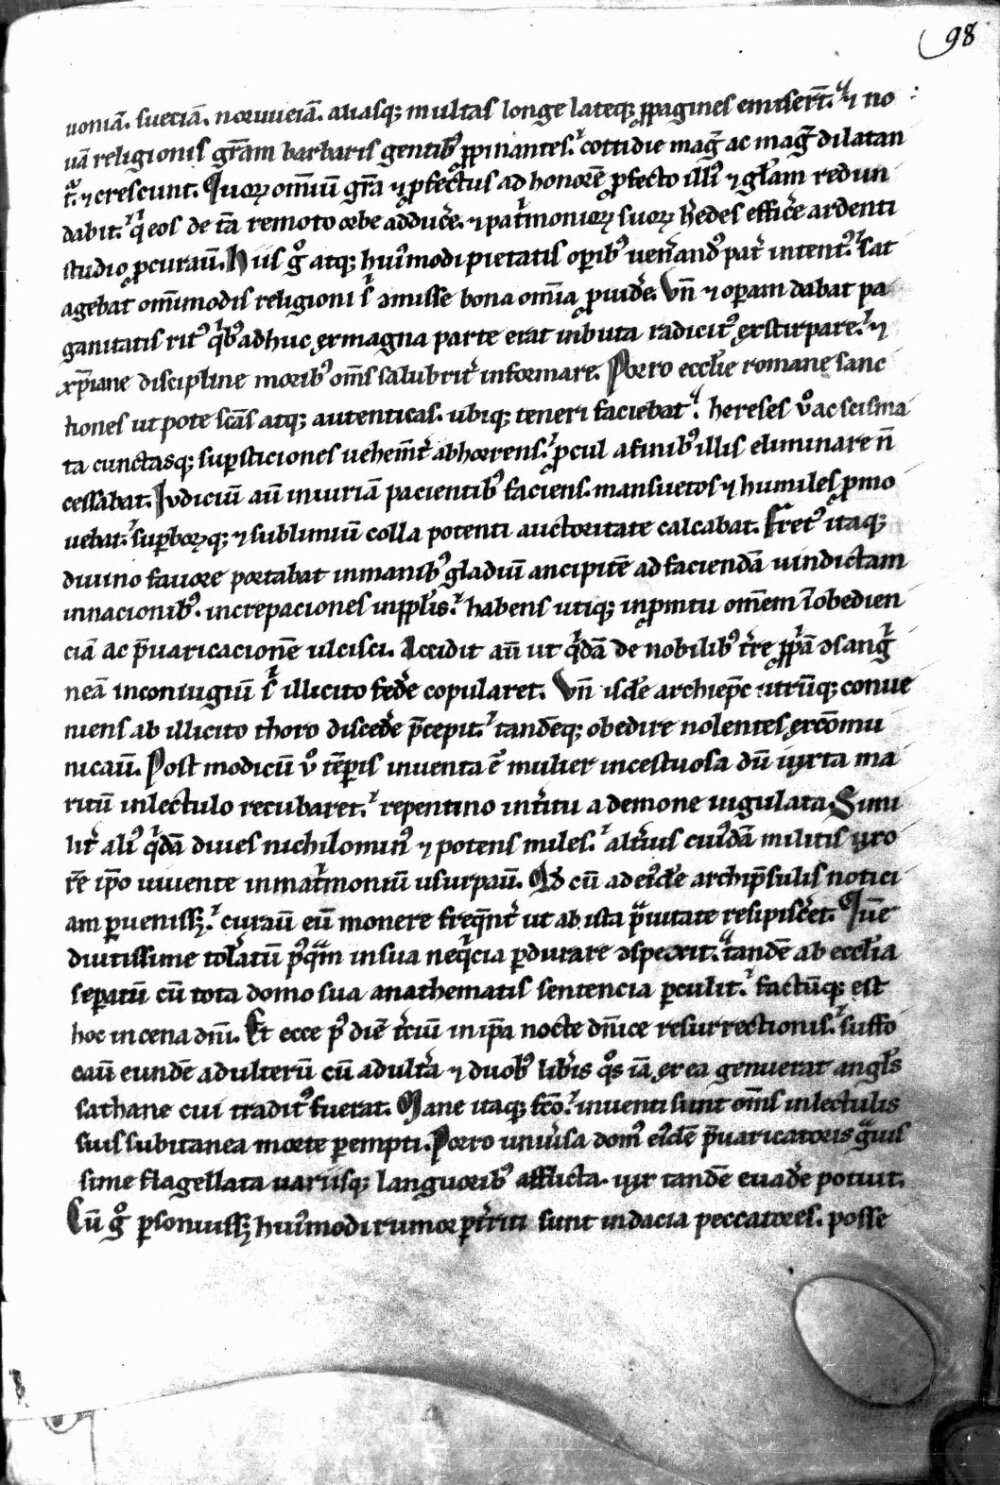 98
uoniā. sueciā. norwueiā. aliasq; multas longe lateq; ꝓpagines emisert̄. ⁊ no
uā religionis gr̄am barbaris gentibꝰ ꝓpinantes. cottidie mag̅ ac mag̅ dilatan
t᷑. ⁊ crescunt. Quoꝝ om̄iū gr̄a ⁊ ꝓfectus ad honorē ꝓfecto illiꝰ ⁊ gl̄am redun
dabit. qͥ eos de t̄a remoto orbe adduc̄e. ⁊ pat̄moniorꝝ suoꝝ h̄edes effic̄e ardenti
studio ꝓcurauͭ. Hiis gͦ atq; huiꝰmodi pietatis oꝑibꝰ uen̄andꝰ pat̄ intentꝰ. sat
agebat om̄imodis religioni s̄ amisse bona om̄ia ꝓuid̄e. Vn̄ ⁊ oꝑam dabat pa
ganitatis ritꝰ qͥbꝰ adhuc ex magna parte erat inbuta radicitꝰ exstirpare. ⁊
xp̄iane discipline moribꝰ om̄s salubrit̄ informare. Porro eccl̄ie romane sanc
tiones ut pote sc̄as atq; autenticas. ubiq; teneri faciebat. hereses uͦ ac scisma
ta cunctasq; suꝑsticiones uehem̄t̄ abhorrens. ꝓcul a finibꝰ illis eliminare n̄
cessabat. Iudiciū aū iniuriā pacientibꝰ faciens. mansuetos ⁊ humiles ꝓmo
uebat. suꝑboꝝq; ⁊ sublimiū colla potenti auctoritate calcabat. Fretꝰ itaq;
diuino fauore portabat in manibꝰ gladiū ancipitē ad faciendā uindictam
in nacionibꝰ. increpaciones in pp̄lis. habens utiq; in ꝓmtu om̄em īobedien
ciā ac p̄uaricacionē ulcisci. Accidit aū ut qͥdā de nobilibꝰ t̄re ꝓpͥā ↄsangͥ
neā in coniugiū s̄ illicito fed̄e copularet. Vn̄ isd̄e archiep̄c utrūq; conue
niens ab illicito thoro disced̄e p̄cepit. tandēq; obedire nolentes excōmu
nicauͭ. Post modicū uͦ tēꝑis inuenta ē mulier incestuosa dū iuxta ma
ritū in lectulo recubaret. repentino int̄itu a demone iugulata. Simi
lit̄ aliꝰ qͥdā diues nichilominꝰ ⁊ potens miles. alt̄ius cuiꝰdā militis uxo
rē ip̄o uiuente in mat̄moniū usurpauͭ. Qd̄ cū ad eiꝰd̄e archip̄sulis notici
am ꝑuenissꝫ. curauͭ eū monere freq̄nt̄ ut ab ista p̄uitate resipisc̄et. Quē
diutissime tol̄atū pꝰqͣm in sua neqͥcia ꝑdurare ↄspexit. tandē ab eccl̄ia
seꝑatū cū tota domo sua anathematis sentencia ꝑculit. factūq; est
hoc in cena dn̄i. Et ecce pꝰ diē t̄ciū in ip̄a nocte dn̄ice resurrectionis. suffo
cauͭ eundē adulterū cū adult̄a ⁊ duobꝰ lib̄is qͦs iā ex ea genuerat angl̄s
sathane cui traditꝰ fuerat. Mane itaq; fc̄o. inuenti sunt om̄s in lectulis
suis subitanea morte ꝑempti. Porro uniu̅sa domꝰ eiꝰdē p̄uaricatoris gͣuis
sime flagellata uariisq; languoribꝰ afflicta. uix tandē euad̄e potuit.
Cū gͦ ꝑsonuissꝫ huiꝰmodi rumor ꝑt̄riti sunt in dacia peccatores. posse